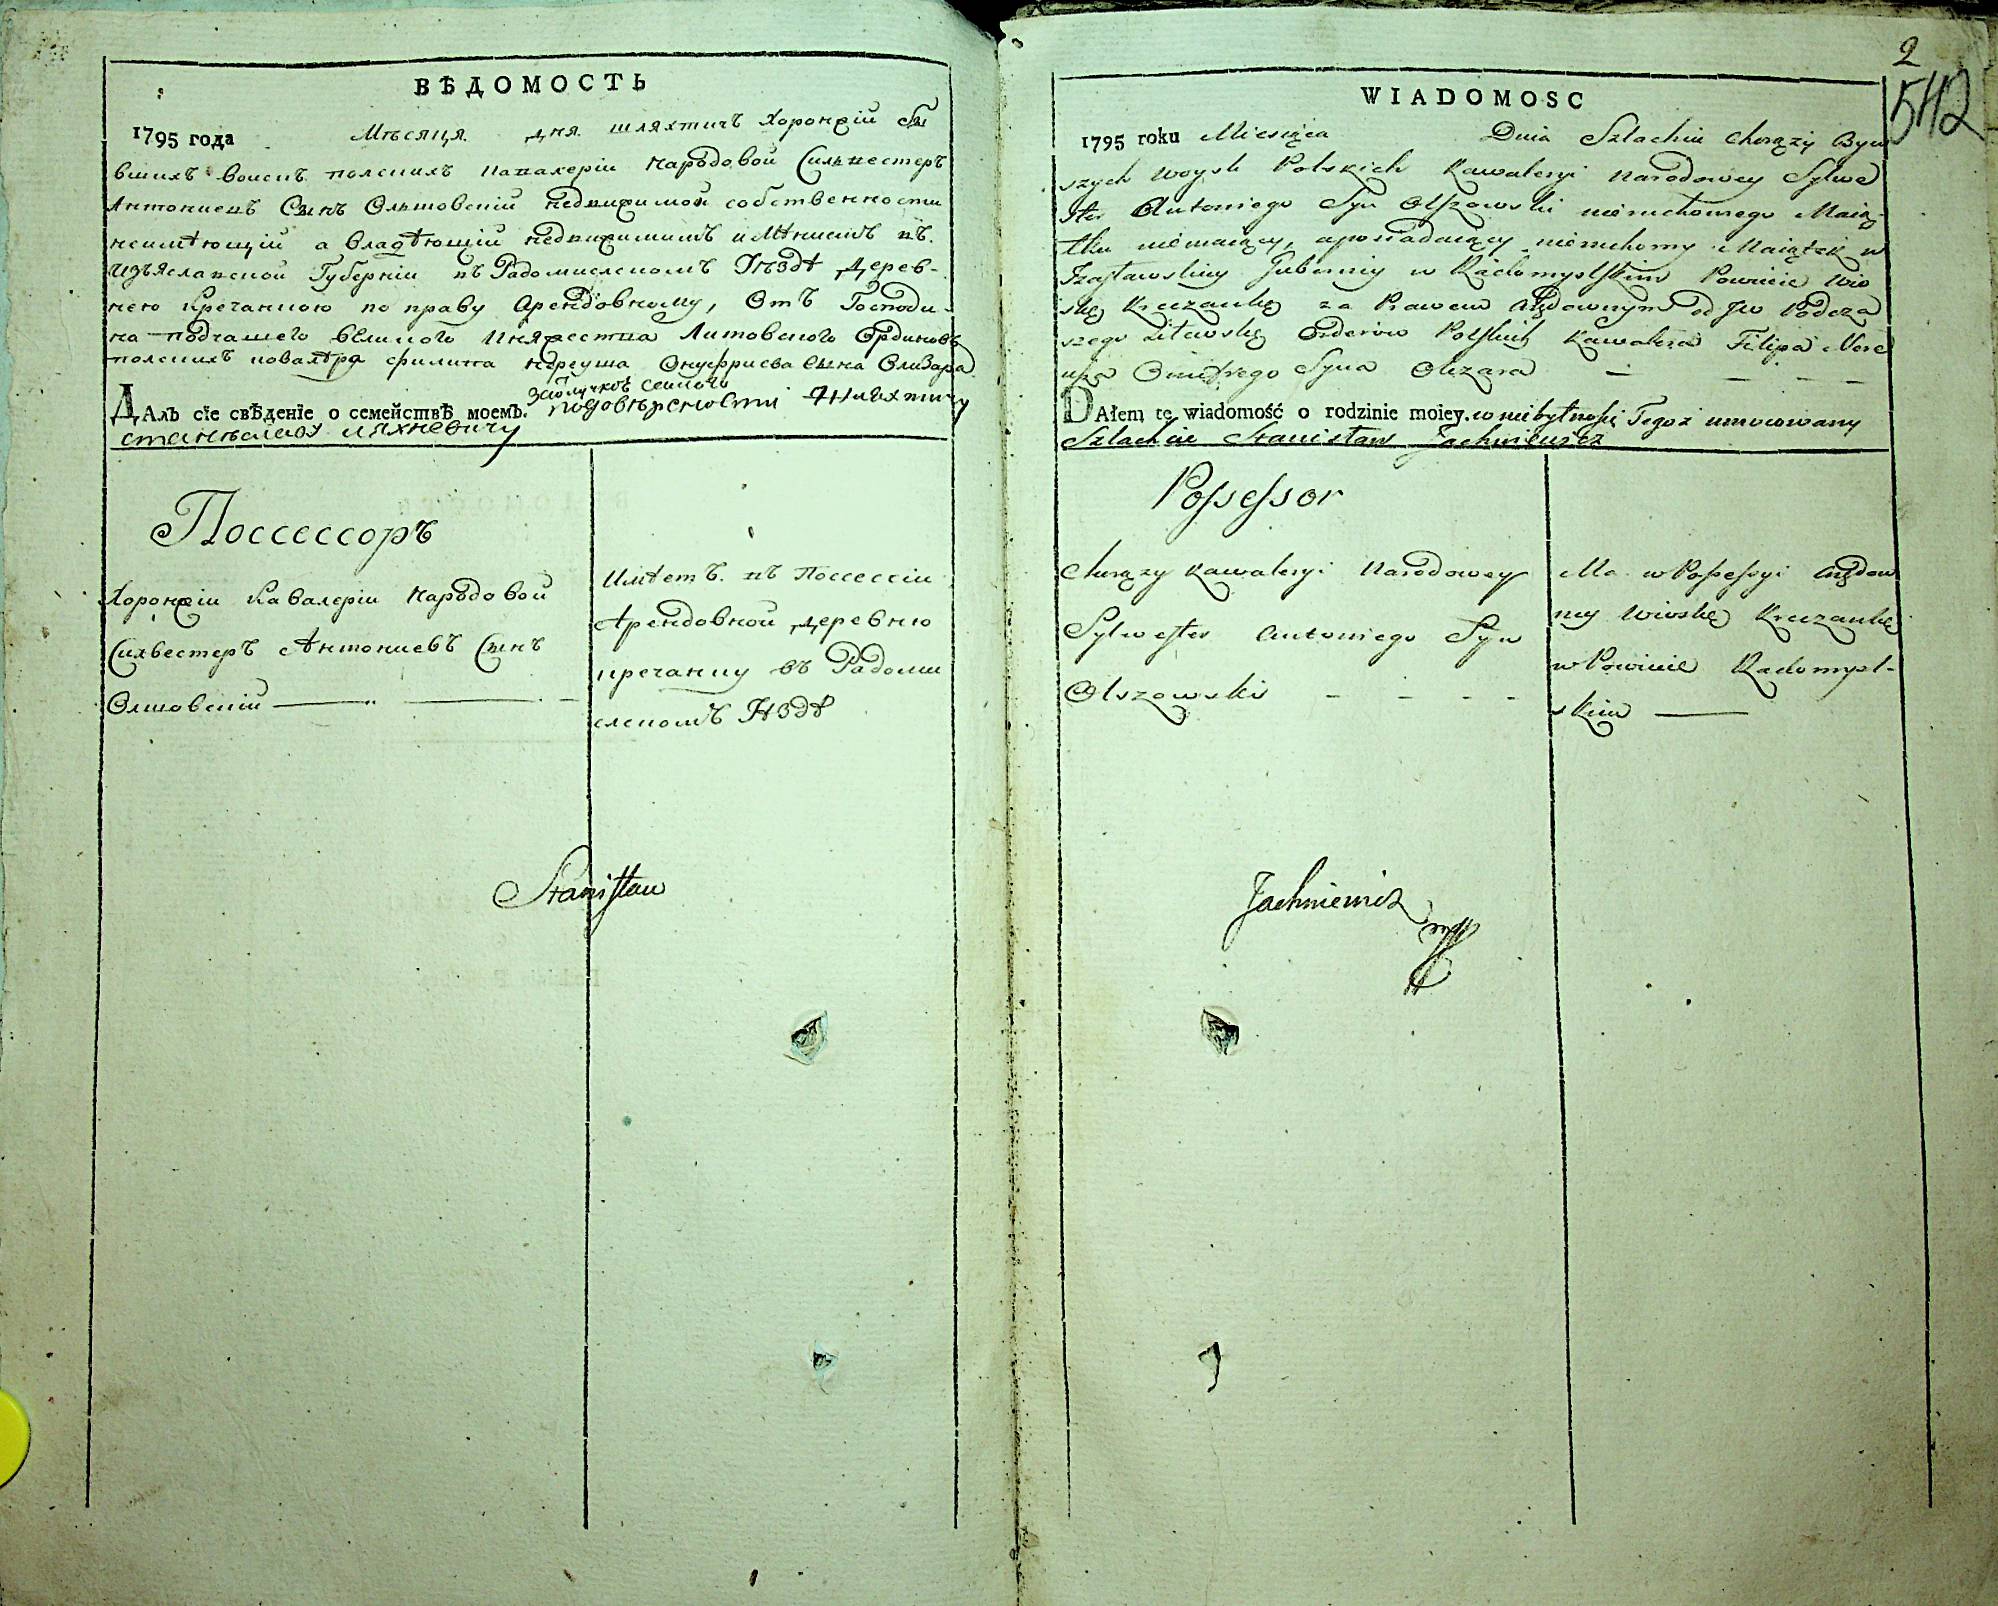 ВѢДОМОСТЬ
1795 года Мѣсяця дня шляхтичъ Хоронжій бы
вшихъ воискъ полскихъ кавалеріи Народовой Сильвестеръ
Антониевъ Сынъ Ольшовскій недвижимой собственности
неимѣющій а владѣющій недвижимимъ имѣниемъ въ
Изъяславской Губерніи въ Радомислскомъ Уѣздѣ Дерев-
нею Кречанкою по праву Арендовному, Отъ Господи-
на подчашего великого Княжества Литовского Ординовъ
полскихъ кавалѣра филипа нереуша Онуфриева Сына Олизара
ДАлъ сїе свѣденїе о семействѣ моемъ.
повѣреномъ Шляхтичу
станѣславу Ляхневичу
Поссессоръ
Хоронжіи Кавалеріи Народовой
Силвестеръ Антониевъ Сынъ
Олшовскій
Имѣетъ въ Поссессіи
Арендовной деревню
кречанку въ Радоми
слскомъ Уѣздѣ
Stanisław
2
542
WIADOMOSC
1795 roku Miesiąca Dnia Szlachcic Chorąży Byw
szych Woysk Polskich Kawaleryi Narodowey Sylwe
ster Antoniego Syn Olszowski nieruchomego Maią-
tku niemaiący, aposiadaiący nieruchomy Maiątek w
Izasławskiey Gubernij w Radomyslskim Powiecie Wio
skę Kreczankę za Prawem Aręndownym od JW Podcza
szego Litewskę Orderow Polskich Kawalera Filipa Nere
usza Onufrego Syna Olizara
DAłem tę wiadomość o rodzinie moiey. w niebytnosci Tegoż umocowany
Szlachcic Stanisław Jachniewicz
Possessor
Chorąży Kawaleryi Narodowey
Sylwester Antoniego Syn
Olszowski
Ma w Possessyi Aręndow
ney Wioskę Kreczankę
w Powiecie Radomysl-
skim
Jachniewicz